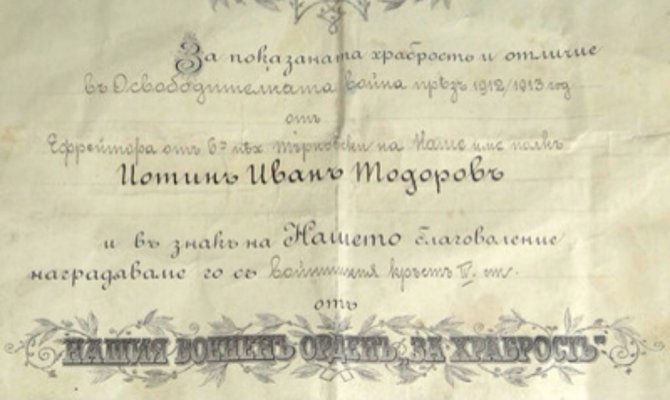 За показаната храбрость и отличие
въ Освободителната война прѣзъ 1912/1913 год
отъ
Ефрейтора отъ 6. пѣх Търновски на Наше име полкъ
Иотинъ Иванъ Тодоровъ
и въ знакъ на Нашето благоволение
награждаваме го съ кръстъ IV. ст.
отъ
НАШИЯ ВОЕНЕНЪ ОРДЕНЪ „ЗА ХРАБРОСТЬ"